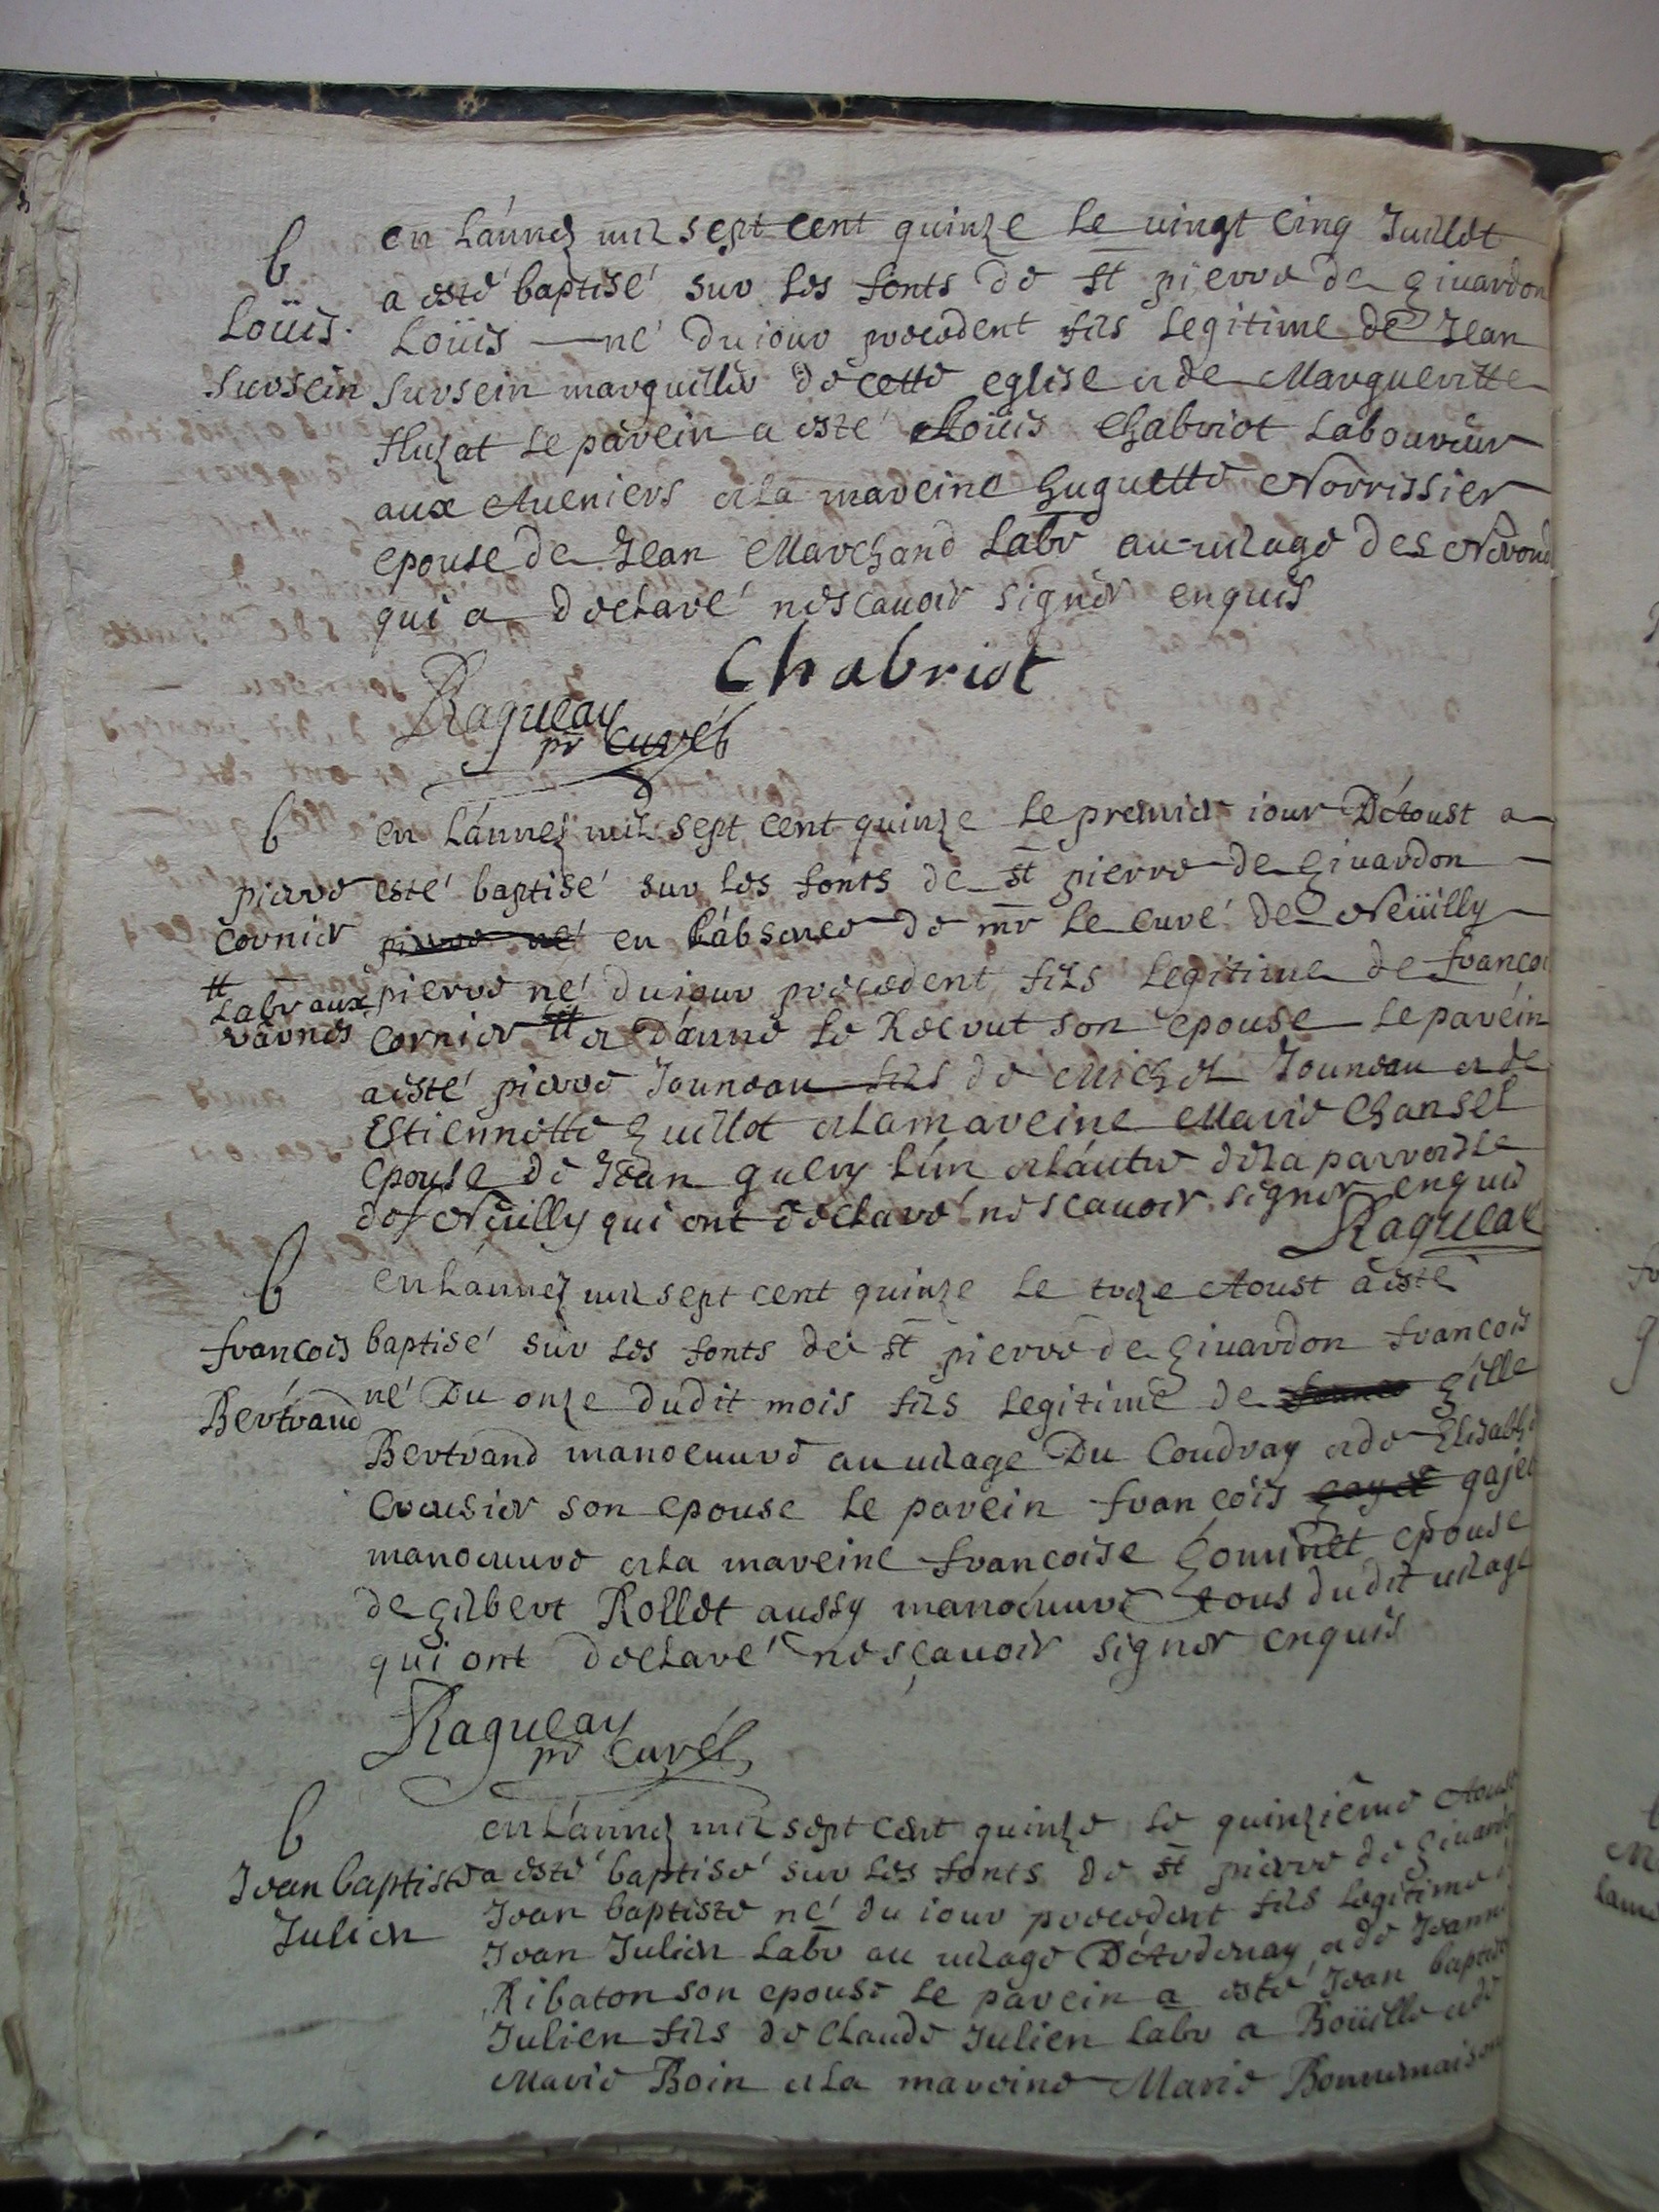 b
Loüis
Sursein
en Lánneé mil sept cent quinze le uingt cinq Juillet
a esté baptisé sur les fonts de st pierre de giuardon
Loüis — né du iour precedent fils legitime de Jean
Sursein marguillier de cette eglise et de Margueritte
fluzat le parein a esté Loüis Chabriot Laboureur
aux Aueniers et la mareine huguette Norrissier
epouse de Jean Marchand Labr au uilage des
qui a declaré ne scauoir signer enquis
Chabriot
Ragueau
pr Curé
b
pierre
Cornier
en Lánneé mil sept cent quinze le premier iour D'Aoust a
esté baptisé sur les fonts de st pierre de giuardon
pierre né en l'absence de mr le curé de Neüilly
pierre né du iour precedent fils legitime de francoi
tt
Labr aux
varnes
Cornier tt et d'anne le son epouse le parein
a esté pierre Jouneau fils de Michel Jouneau et de
Estiennette guillot et la mareine Marie Chansel
epouse de Jean guery l'un et l'autre de la parroisse
de Neüilly qui ont declaré ne scauoir signer enquis
Ragueau
b
francois
Bertrand
en Lánneé mil sept cent quinze le treze Aoust a esté
baptisé sur les fonts de st pierre de giuardon francois
né du onze dudit mois fils legitime de gille
Bertrand manoeuure au uilage Du Coudray et de Elisabhe
Creusier son epouse le parein françois gayet gajet
manoeuure et la mareine françoise gouinet epouse
de gilbert Rollet aussy manoeuure tous dudit uilage
qui ont declaré ne sçauoir signer enquis
Ragueau
pr Curé
b
Jean baptiste
Julien
en Lánneé mil sept cent quinze le quinziéme Aoust
a esté baptisé sur les fonts de st pierre de giuardo
Jean baptiste né du iour precedent fils legitime d
Jean Julien Labr au uilage D'Ardenay et de Jeanne
Ribaton son epouse le parein a esté Jean baptist
Julien fils de Claude Julien Labr a Boüille et de
Marie Boin et la mareine Marie Bonnemaison